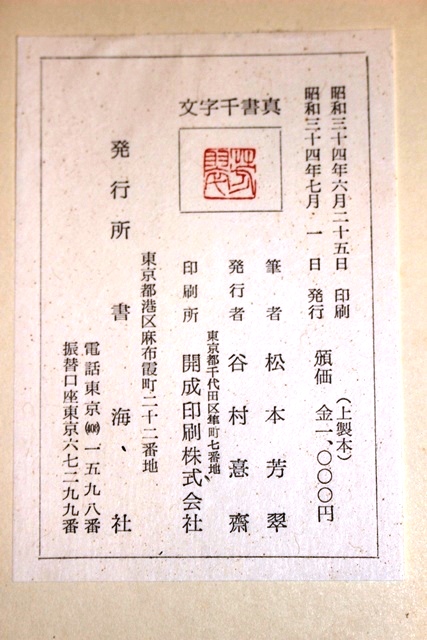 昭和三十四年六月二十五日 印刷
昭和三十四年七月 一 日 発行
頒価 金一、〇〇〇円
(上製本)
真書千字文
芳翠
筆者 松本芳翠
発行者 谷村憙齋
東京都千代田区隼町七番地
印刷所 開成印刷株式会社
東京都港区麻布霞町二十二番地
発行所 書海社
電話東京(408)一五九八番
振替口座東京六七二九九番